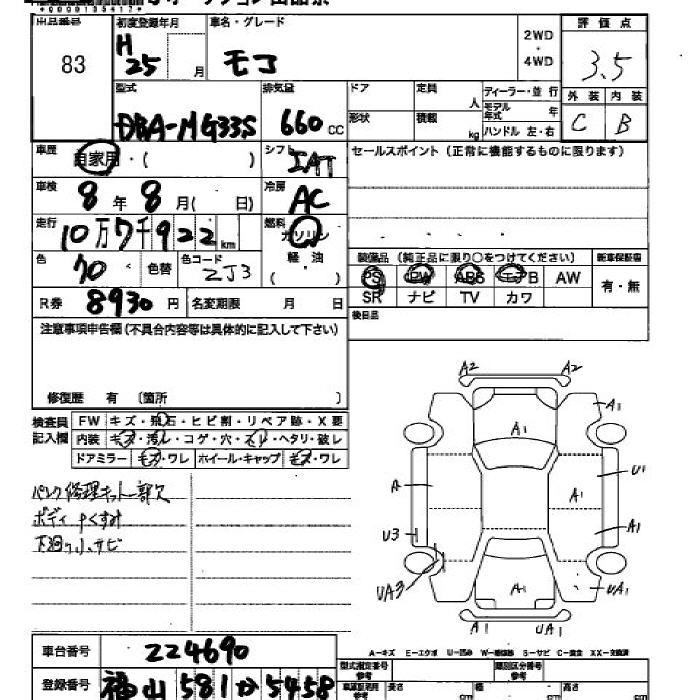 *0000135417*
出品番号 初度登録年月 車名・グレード 評価点
83 H 25 月 モコ 2WD・4WD 3.5
型式 排気量 ドア 定員 人 ディーラー・並行 外装 内装
DBA-MG33S 660 CC 形状 積載 kg モデル年式 年 ハンドル 左・右 C B
車歴 自家用・( ) シフト IAT セールスポイント (正常に機能するものに限ります)
車検 8年 8月( 日) 冷房 AC
走行 10万7千922km 燃料 ガソリン 軽・油 ( )
装備品 (純正品に限り○をつけてください) 新車保証書
色 カラーコード ZJ3 色替
PS PW ABS エアB AW 有・無
SR ナビ TV カワ
R券 8930円 名変期限 月 日
後日品
注意事項申告欄(不具合内容等は具体的に記入して下さい)
修復歴 有 〔箇所 〕
検査員記入欄 FW キズ・飛石・ヒビ割・リペア跡・X要
内装 キズ・汚レ・コゲ・穴・スレ・ヘタリ・破レ
ドアミラー キズ・ワレ ホイール・キャップ キズ・ワレ
パンク修理キット一部欠
ボディ
下廻り小サビ
A2 A2
A1 A1
A U1
A1
U3 A1
UA3 A1 UA1
A1 UA1
A-キズ E-エクボ U-凹み W-補修跡 S-サビ C-腐食 XX-交換済
車台番号 224690 型式指定番号 参考 類別区分番号 参考
登録番号 福山 581 か 5458 長さ cm 幅 cm 高さ cm